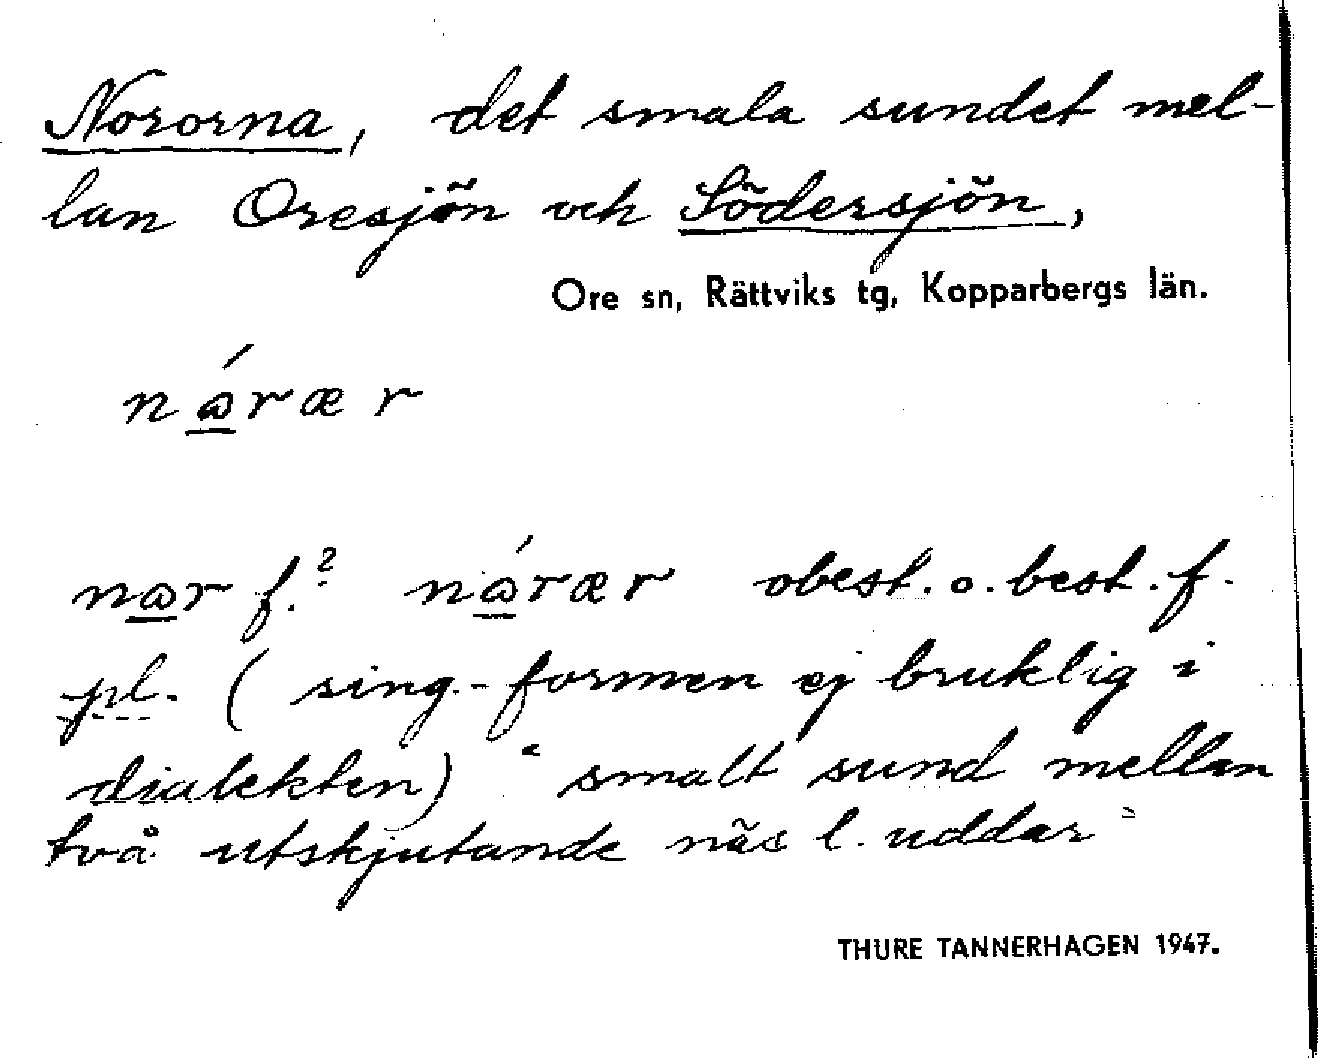 Nororna, det smala sundet mel-
lan Oresjön och Södersjön,
Ore sn, Rättviks tg, Kopparbergs län.
nɷ́rær
nɷr f.? nɷ́rær obest. o. best. f.
pl. (sing.-formen ej bruklig i
dialekten) "smalt sund mellan
två utskjutande näs l. uddar"
THURE TANNERHAGEN 1947.